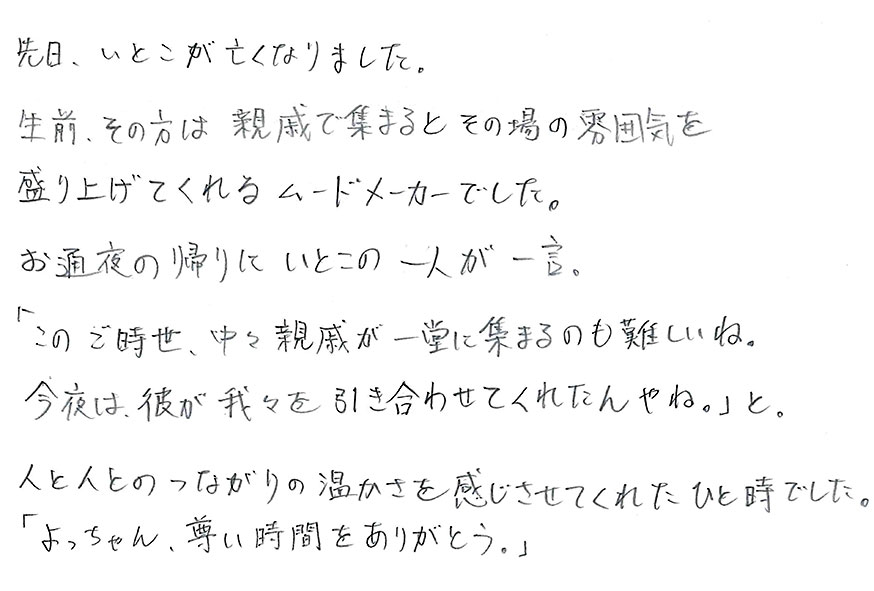 先日、いとこが亡くなりました。
生前、その方は親戚で集まるとその場の雰囲気を
盛り上げてくれるムードメーカーでした。
お通夜の帰りにいとこの一人が一言。
「このご時世、中々親戚が一堂に集まるのも難しいね。
今夜は、彼が我々を引き合わせてくれたんやね。」と。
人と人とのつながりの温かさを感じさせてくれたひと時でした。
「よっちゃん、尊い時間をありがとう。」